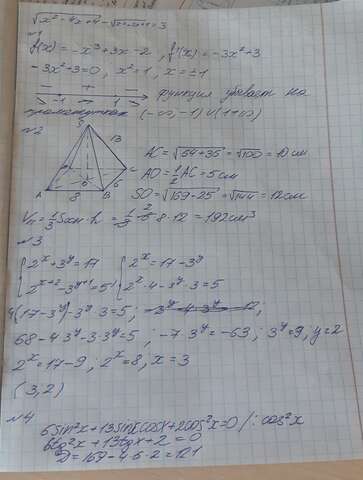 √x²-4x+4 - √... = 3
№1
f(x) = -x³+3x-2, f'(x) = -3x²+3
-3x²+3=0, x²=1, x=±1
- + -
-1 1 функция убывает на
промежутках (-∞, -1) U (1+∞)
№2
S
13
C
6
O
A 8 B
AC = √64+36 = √100 = 10 см
AO = 1/2 AC = 5 см
SO = √169-25 = √144 = 12 см
Vп = 1/3 Sосн · h = 1/3 · 6 · 8 · 12 = 192 см³
№3
{2ˣ+3ʸ=17 {2ˣ=17-3ʸ
{2ˣ⁺²-3ʸ⁺¹=5 {2ˣ·4-3ʸ·3=5
4(17-3ʸ)-3ʸ·3=5;
68-4·3ʸ-3·3ʸ=5; -7·3ʸ=-63; 3ʸ=9, y=2
2ˣ=17-9; 2ˣ=8, x=3
(3,2)
№4
6sin²x+13sinxcosx+2cos²x=0 /: cos²x
6tg²x+13tgx+2=0
D=169-4·6·2=121